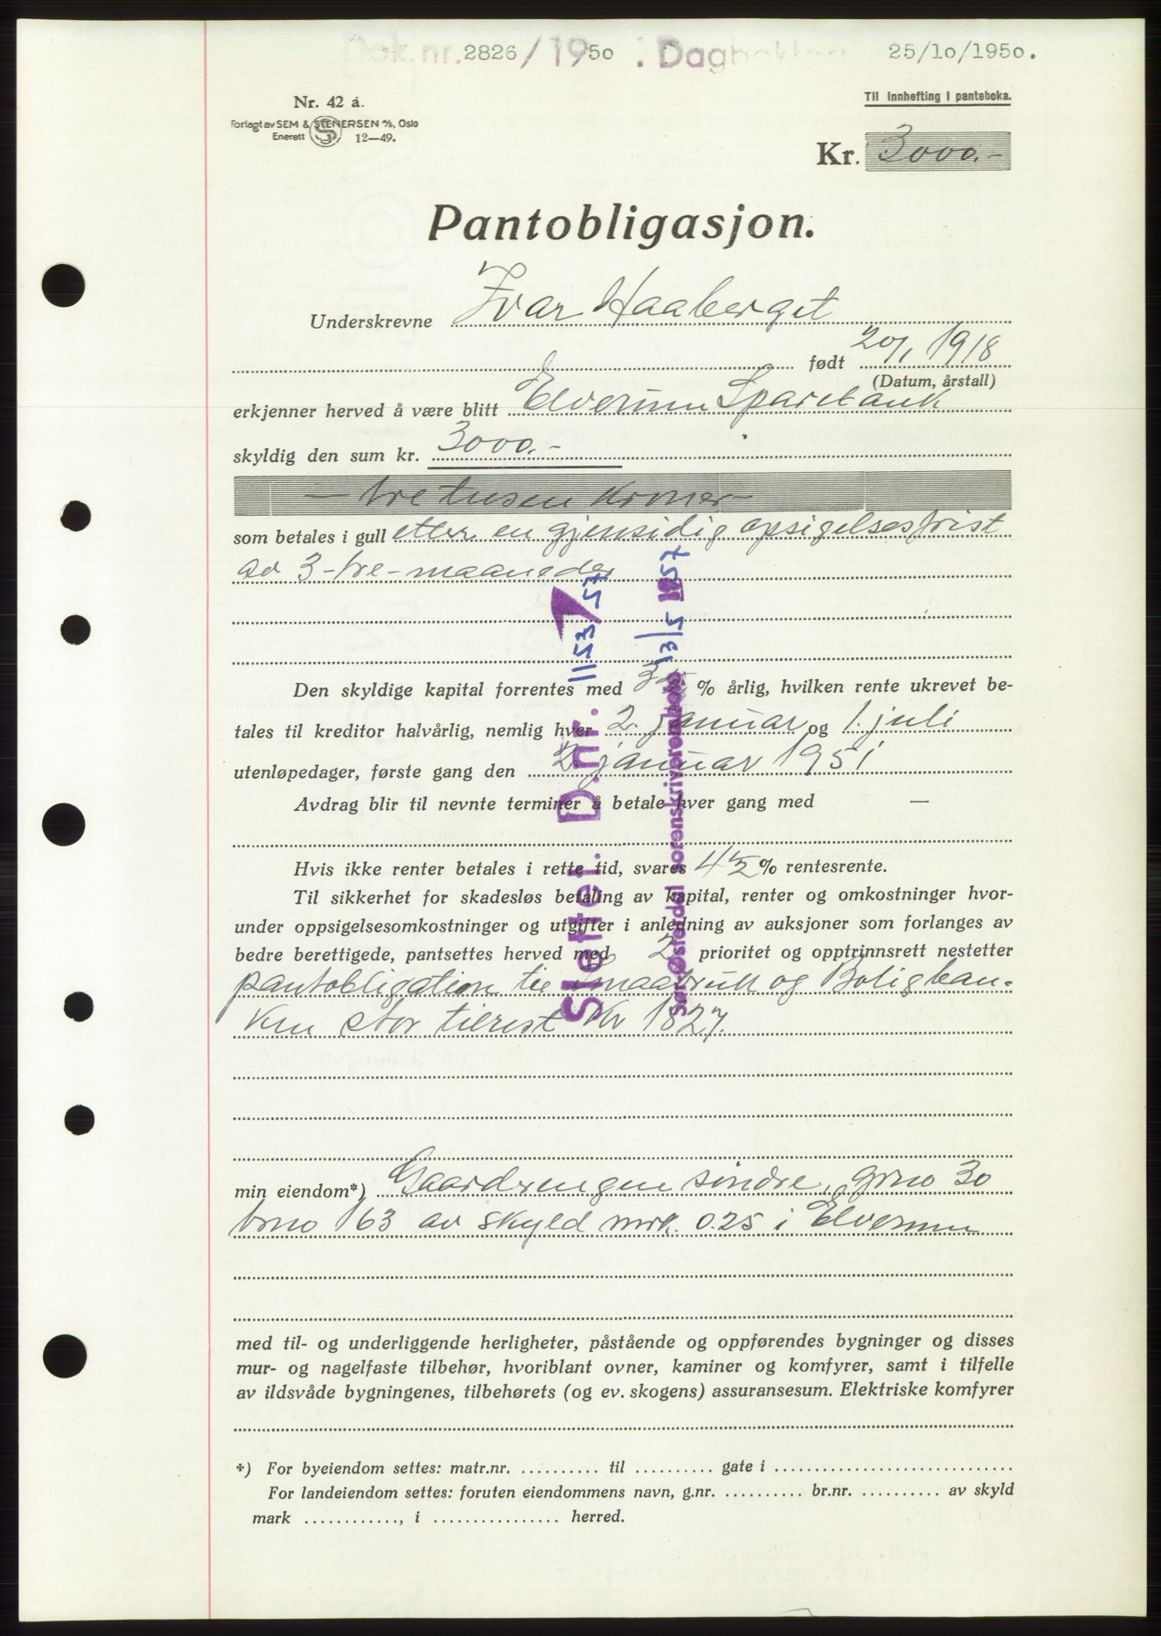 Dok.nr. 2826/1950 : Dagboktatt 25/10/1950.
Nr. 42 á.
Til innhefting i panteboka.
Forlagt av SEM & STENERSEN A/S, Oslo
Enerett S 12—49.
Kr. 3000.-
Pantobligasjon.
Underskrevne Ivar Haaberget
født 20/1 1918
(Datum, årstall)
erkjenner herved å være blitt Elverum Sparebank
skyldig den sum kr. 3000.-
— tre tusen kroner —
som betales i gull etter en gjensidig opsigelsesfrist
av 3-tre-maaneder
Den skyldige kapital forrentes med % årlig, hvilken rente ukrevet be-
tales til kreditor halvårlig, nemlig hver 2. januar og 1. juli
utenløpedager, første gang den 2. januar 1951
Avdrag blir til nevnte terminer å betale hver gang med —
Hvis ikke renter betales i rette tid, svares 4½ % rentesrente.
Til sikkerhet for skadesløs betaling av kapital, renter og omkostninger hvor-
under oppsigelsesomkostninger og utgifter i anledning av auksjoner som forlanges av
bedre berettigede, pantsettes herved med 2 prioritet og opptrinnsrett nestetter
pantobligation til Smaabruk og Boligban-
ken stor kr 1827.
min eiendom*) Gaardvengen søndre, grno 30
brno 163 av skyld mrk. 0.25 i Elverum
med til- og underliggende herligheter, påstående og oppførendes bygninger og disses
mur- og nagelfaste tilbehør, hvoriblant ovner, kaminer og komfyrer, samt i tilfelle
av ildsvåde bygningenes, tilbehørets (og ev. skogens) assuransesum. Elektriske komfyrer
*) For byeiendom settes: matr.nr. .......... til .......... gate i ..............................
For landeiendom settes: foruten eiendommens navn, g.nr. .......... br.nr. .......... av skyld
mark ............, i ................ herred.
Slettet. D.nr. 1153/57
Sør-Østerdal sorenskriverembede 13/5 1957